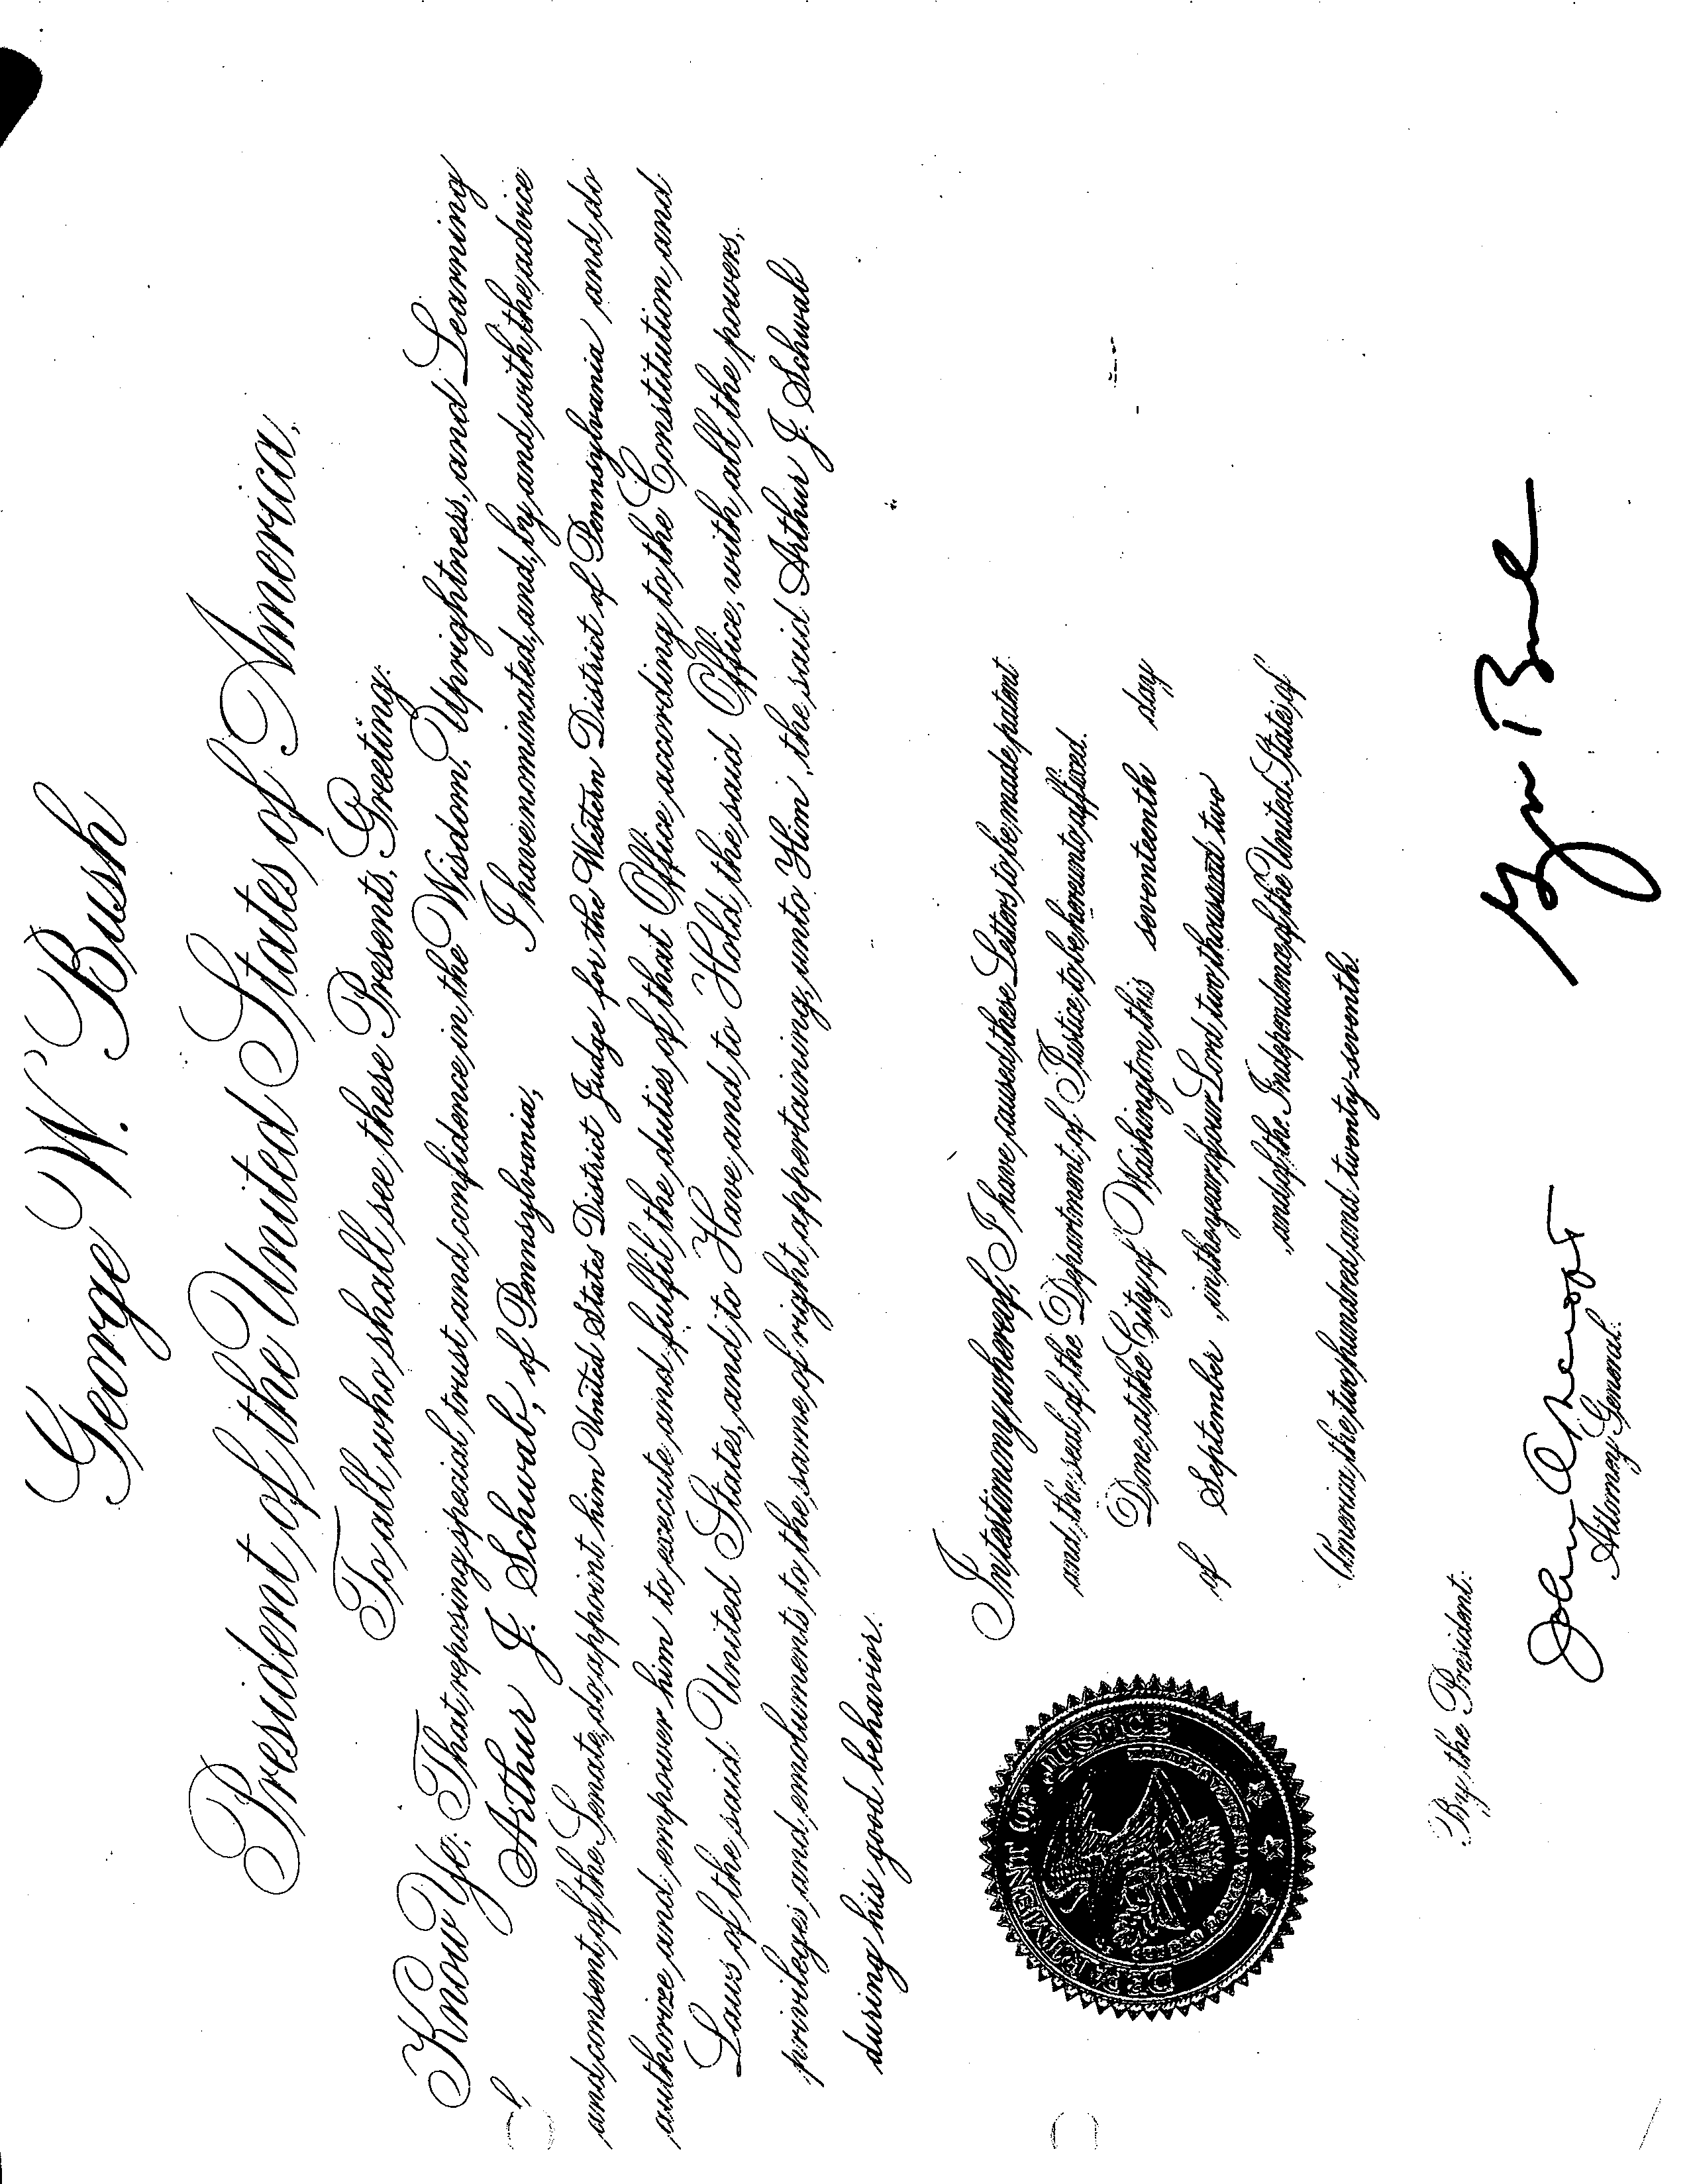 George W. Bush
President of the United States of America,
To all who shall see these Presents, Greeting:
Know Ye: That, reposing special trust and confidence in the Wisdom, Uprightness, and Learning
of Arthur J. Schwab, of Pennsylvania, I have nominated, and, by and with the advice
and consent of the Senate, do appoint him United States District Judge for the Western District of Pennsylvania and do
authorize and empower him to execute and fulfil the duties of that Office according to the Constitution and
Laws of the said United States, and to Have and to Hold the said Office, with all the powers,
privileges and emoluments to the same of right appertaining, unto Him, the said Arthur J. Schwab
during his good behavior.
In testimony whereof, I have caused these Letters to be made patent
and the seal of the Department of Justice to be hereunto affixed.
Done at the City of Washington, this seventeenth day
of September, in the year of our Lord two thousand two
and of the Independence of the United States of
America, the two hundred and twenty-seventh.
DEPARTMENT OF JUSTICE
By the President:
George Bush
John Ashcroft
Attorney General.